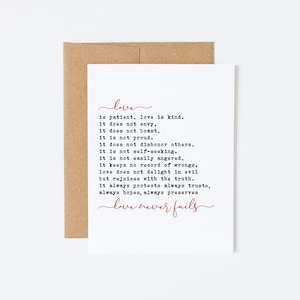 love
is patient, love is kind.
it does not envy,
it does not boast,
it is not proud.
it does not dishonor others,
it is not self-seeking.
it is not easily angered,
it keeps no record of wrongs.
love does not delight in evil
but rejoices with the truth.
it always protests always trusts,
always hopes, always preserves
love never fails